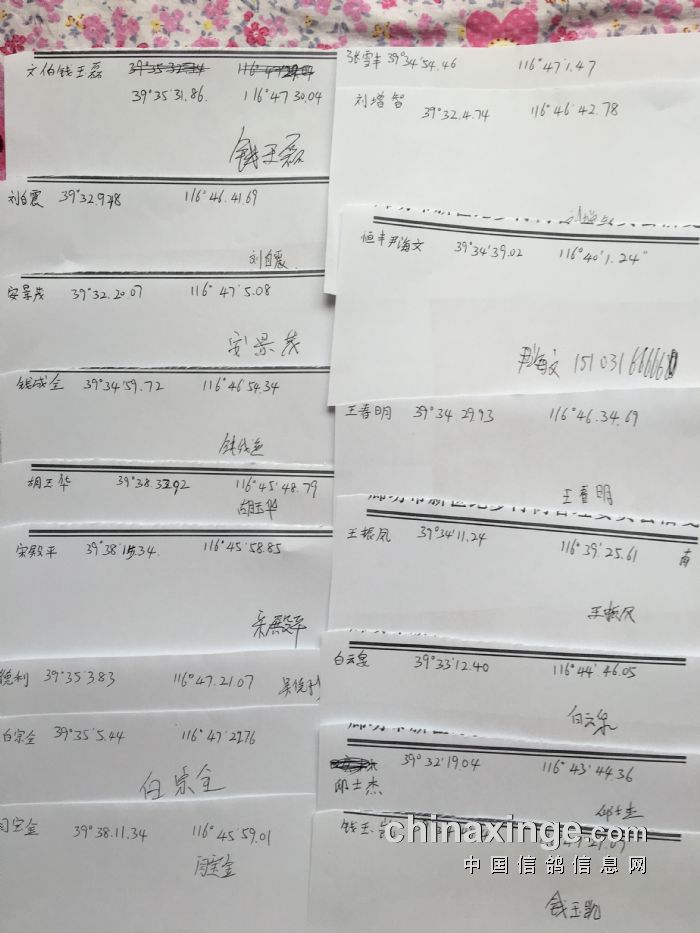 文伯钱玉磊 39°35'32.34 116°47'29.04
39°35'31.86. 116°47 30.04
钱玉磊
刘白震 39°32.9.48 116°46.41.69
刘白震
安景茂 39°32.20.07 116°47'5.08
安景茂
钱成全 39°34'59.72 116°46'54.34
胡玉华 39°38.33.92 116°45'48.79
胡玉华
宋殿平 39°38'15.34. 116°45'58.85
宋殿平
德利 39°35'3.83 116°47.21.07
白宗全 39°35'5.44 116°47'21.76
白宗全
闫宝金 39°38.11.34 116°45'59.01
闫宝金
张雪丰 39°34'54.46 116°47'1.47
刘增智 39°32.4.74 116°46'42.78
刘增智
恒丰尹海文 39°34'39.02 116°40'1.24"
尹海文 151031666660
王春明 39°34.29.93 116°46.34.69
王春明
王振凤 39°34'11.24 116°39'25.61 南
王振凤
白云泉 39°33'12.40 116°44'46.05
白云泉
39°32'19.04 116°43'44.36
邱士杰
邱士杰
钱玉凯
chinaxinge.com
47'21.07
中国信鸽信息网
钱玉凯